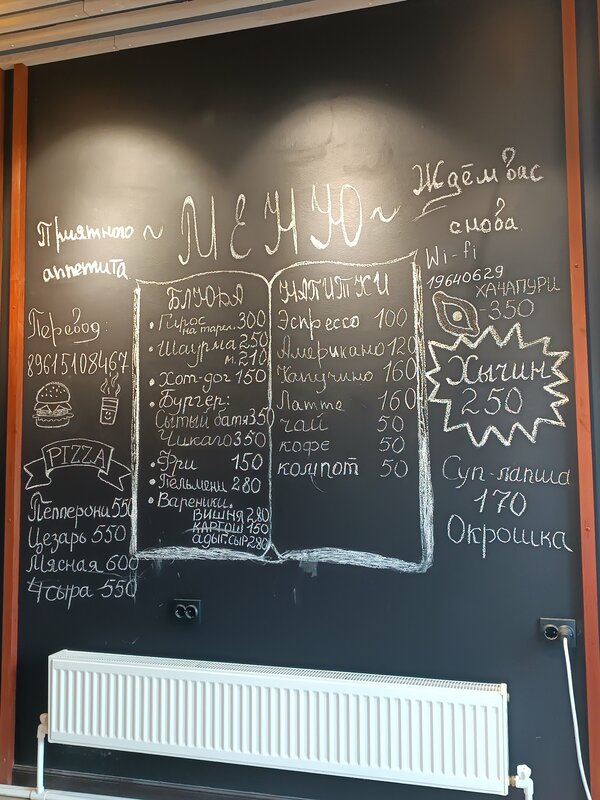 Приятного
аппетита
~ МЕНЮ ~
Ждём вас
снова
Перевод:
89615108467
PIZZA
Пепперони 550
Цезарь 550
Мясная 600
4 сыра 550
БЛЮДА
• Гирос
на тарел. 300
• Шаурма 250
м. 210
• Хот-дог 150
• Бургер:
Сытый батя 350
Чикаго 350
• Фри 150
• Пельмени 280
• Вареники:
ВИШНЯ 280
КАРТОШ 150
адыг. сыр 280
НАПИТКИ
Эспрессо 100
Американо 120
Капучино 160
Латте 160
чай 50
кофе 50
компот 50
Wi-fi
19640629
ХАЧАПУРИ
-350
Хычин
250
Суп-лапша
170
Окрошка